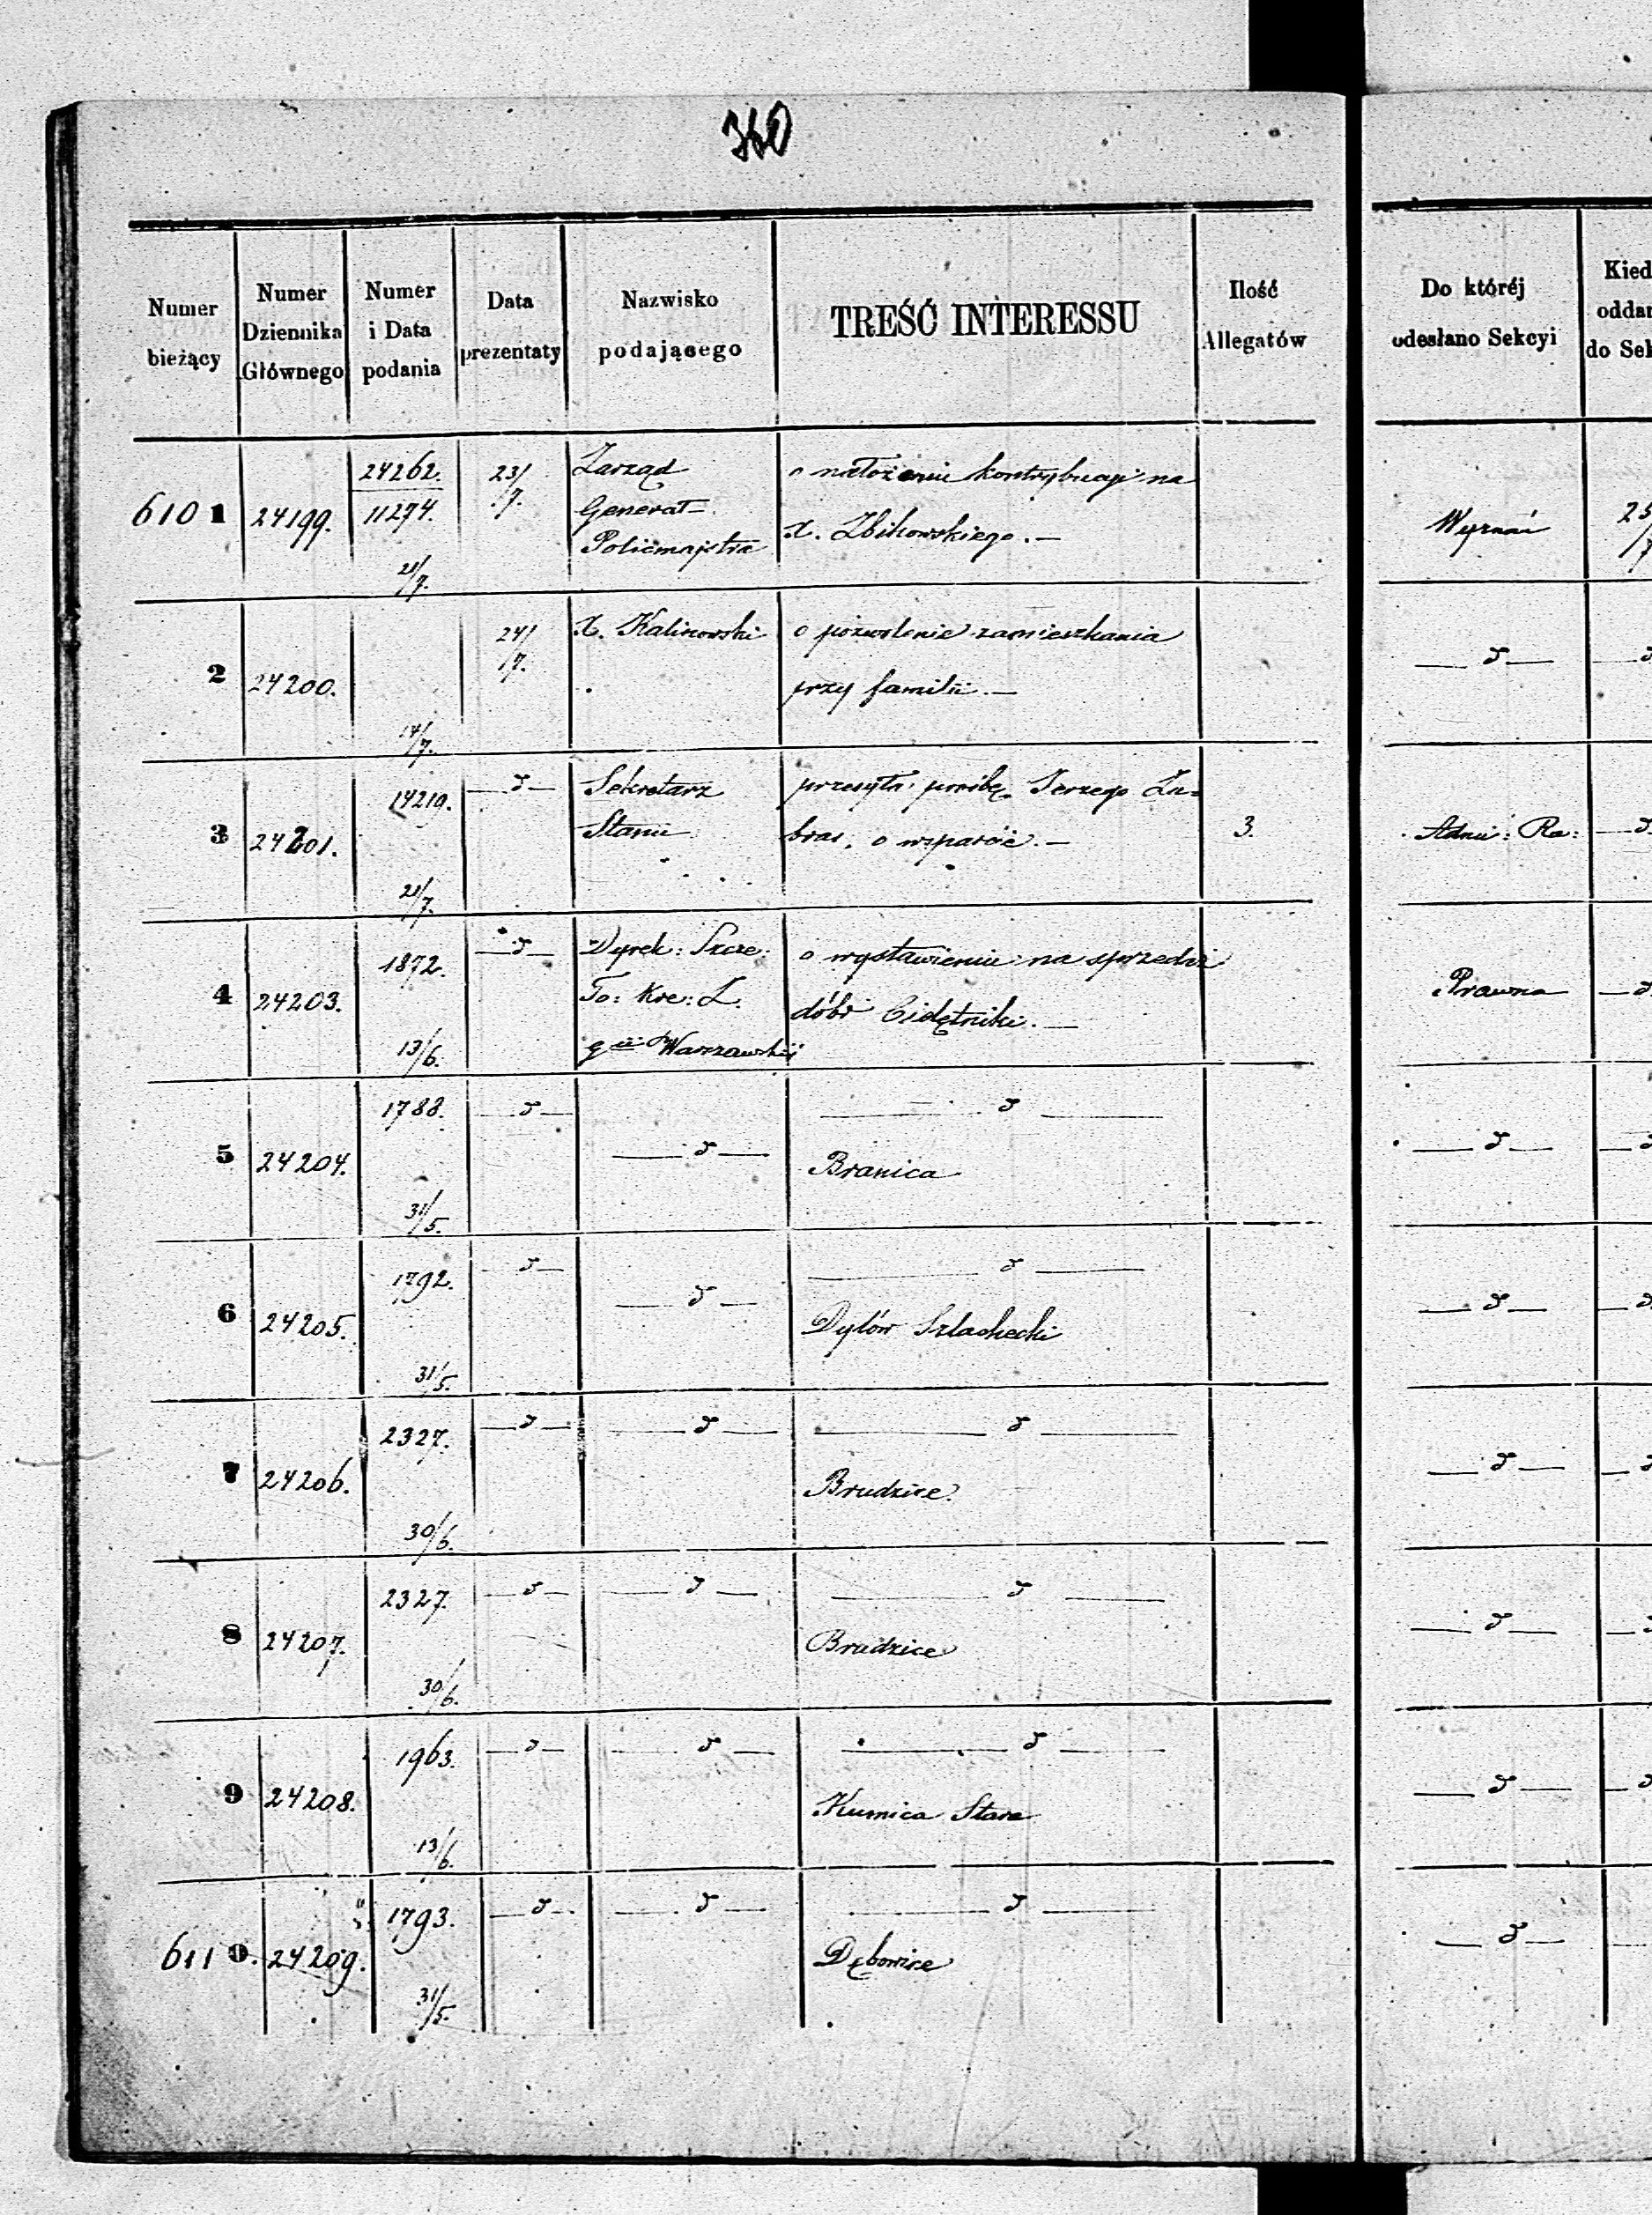 360
Numer bieżący
Numer Dziennika Głównego
Numer i Data podania
Data prezentaty
Nazwisko podającego
TREŚĆ INTERESSU
Ilość Allegatów
Do któréj odesłano Sekcyi
Kied
oddan
do Sek
6101 24199. 24262. 11274. 21/7. 23/7.
Zarząd
Generał-
Policmajstra
o nałożeniu kontrybucyi na
X. Zbikowskiego.—
Wyznań 25/7
2 24200. 14/7. 24/7. X. Kalinowski
o pozwolenie zamieszkania
przy familii.—
— d —
3 24201. 14219. 21/7. — d —
Sekretarz
Stanu
przesyła prośbę Jerzego Za=
bras, o wsparcie.—
3. Admi: Ra: — d
4 24203. 1872. 13/6. — d —
Dyrek: Szcze:
To: Kre: Z.
gii Warszawskiéj
o wystawieniu na sprzedaż
dóbr —
Prawna — d
5 24204. 1788. 31/5. — d — — d — — d —
Branica
— d — — d
6 24205. 1792. 31/5. — d — — d — — d —
Dylów Szlachecki
— d — — d
7 24206. 2327. 30/6. — d — — d — — d —
Brudzice.
— d — — d
8 24207. 2327. 30/6. — d — — d — — d —
Brudzice
— d — — d
9 24208. 1963. 13/6. — d — — d — — d —
Stara
— d — — d
6110. 24209. 1793. 31/5. — d — — d — — d —
Dębowice
— d —